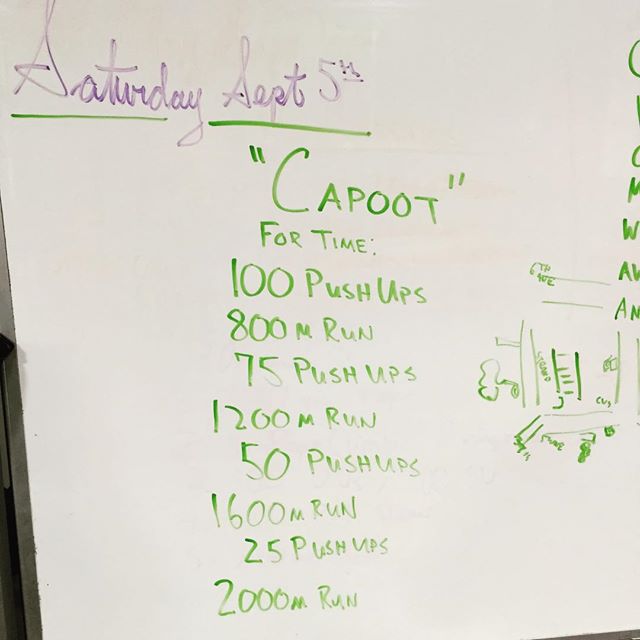 Saturday Sept 5th
"CAPOOT"
FOR TIME:
100 PUSHUPS
800M RUN
75 PUSHUPS
1200M RUN
50 PUSHUPS
1600M RUN
25 PUSHUPS
2000M RUN
6TH
AVE
CVS